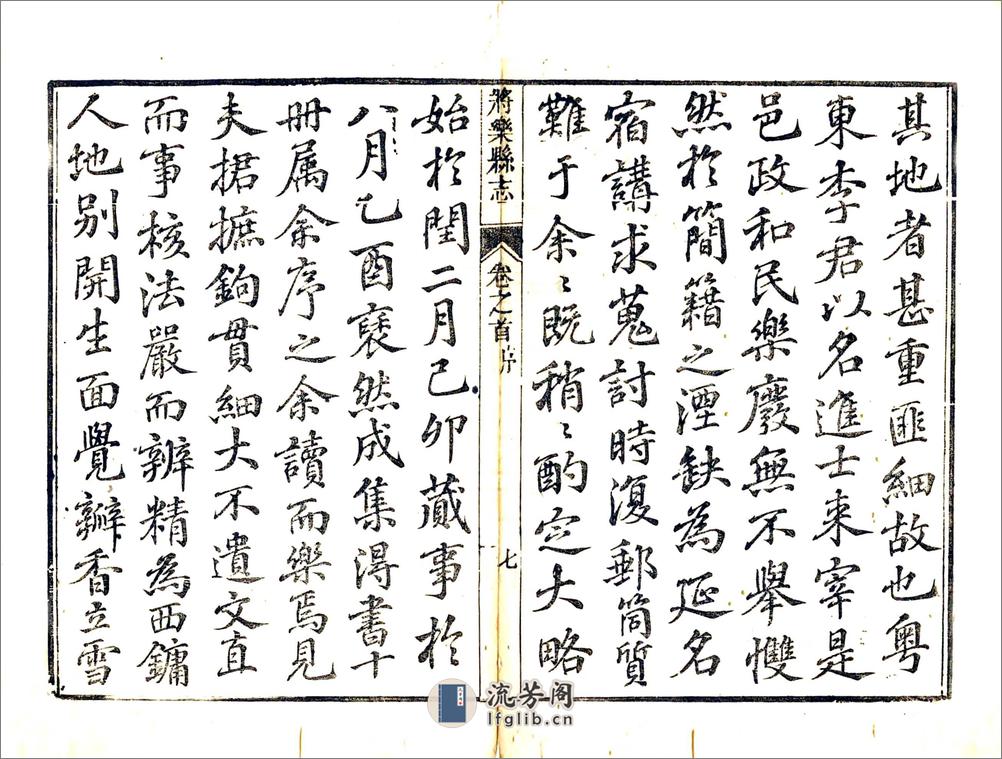 其地者甚重匪細故也粵
東李君以名進士来宰是
邑政和民樂廢無不舉惟
然於簡籍之湮缺為延名
宿講求蒐討時復郵筒質
難于余〻既稍〻酌定大略
將樂縣志
卷之首序
七
始於閏二月己卯蕆事於
八月乙酉裒然成集得書十
冊属余序之余讀而樂焉見
夫捃摭鉤貫細大不遺文直
而事核法嚴而辨精為西鏞
人地别開生面覺瓣香立雪
流芳阁
lfglib.cn